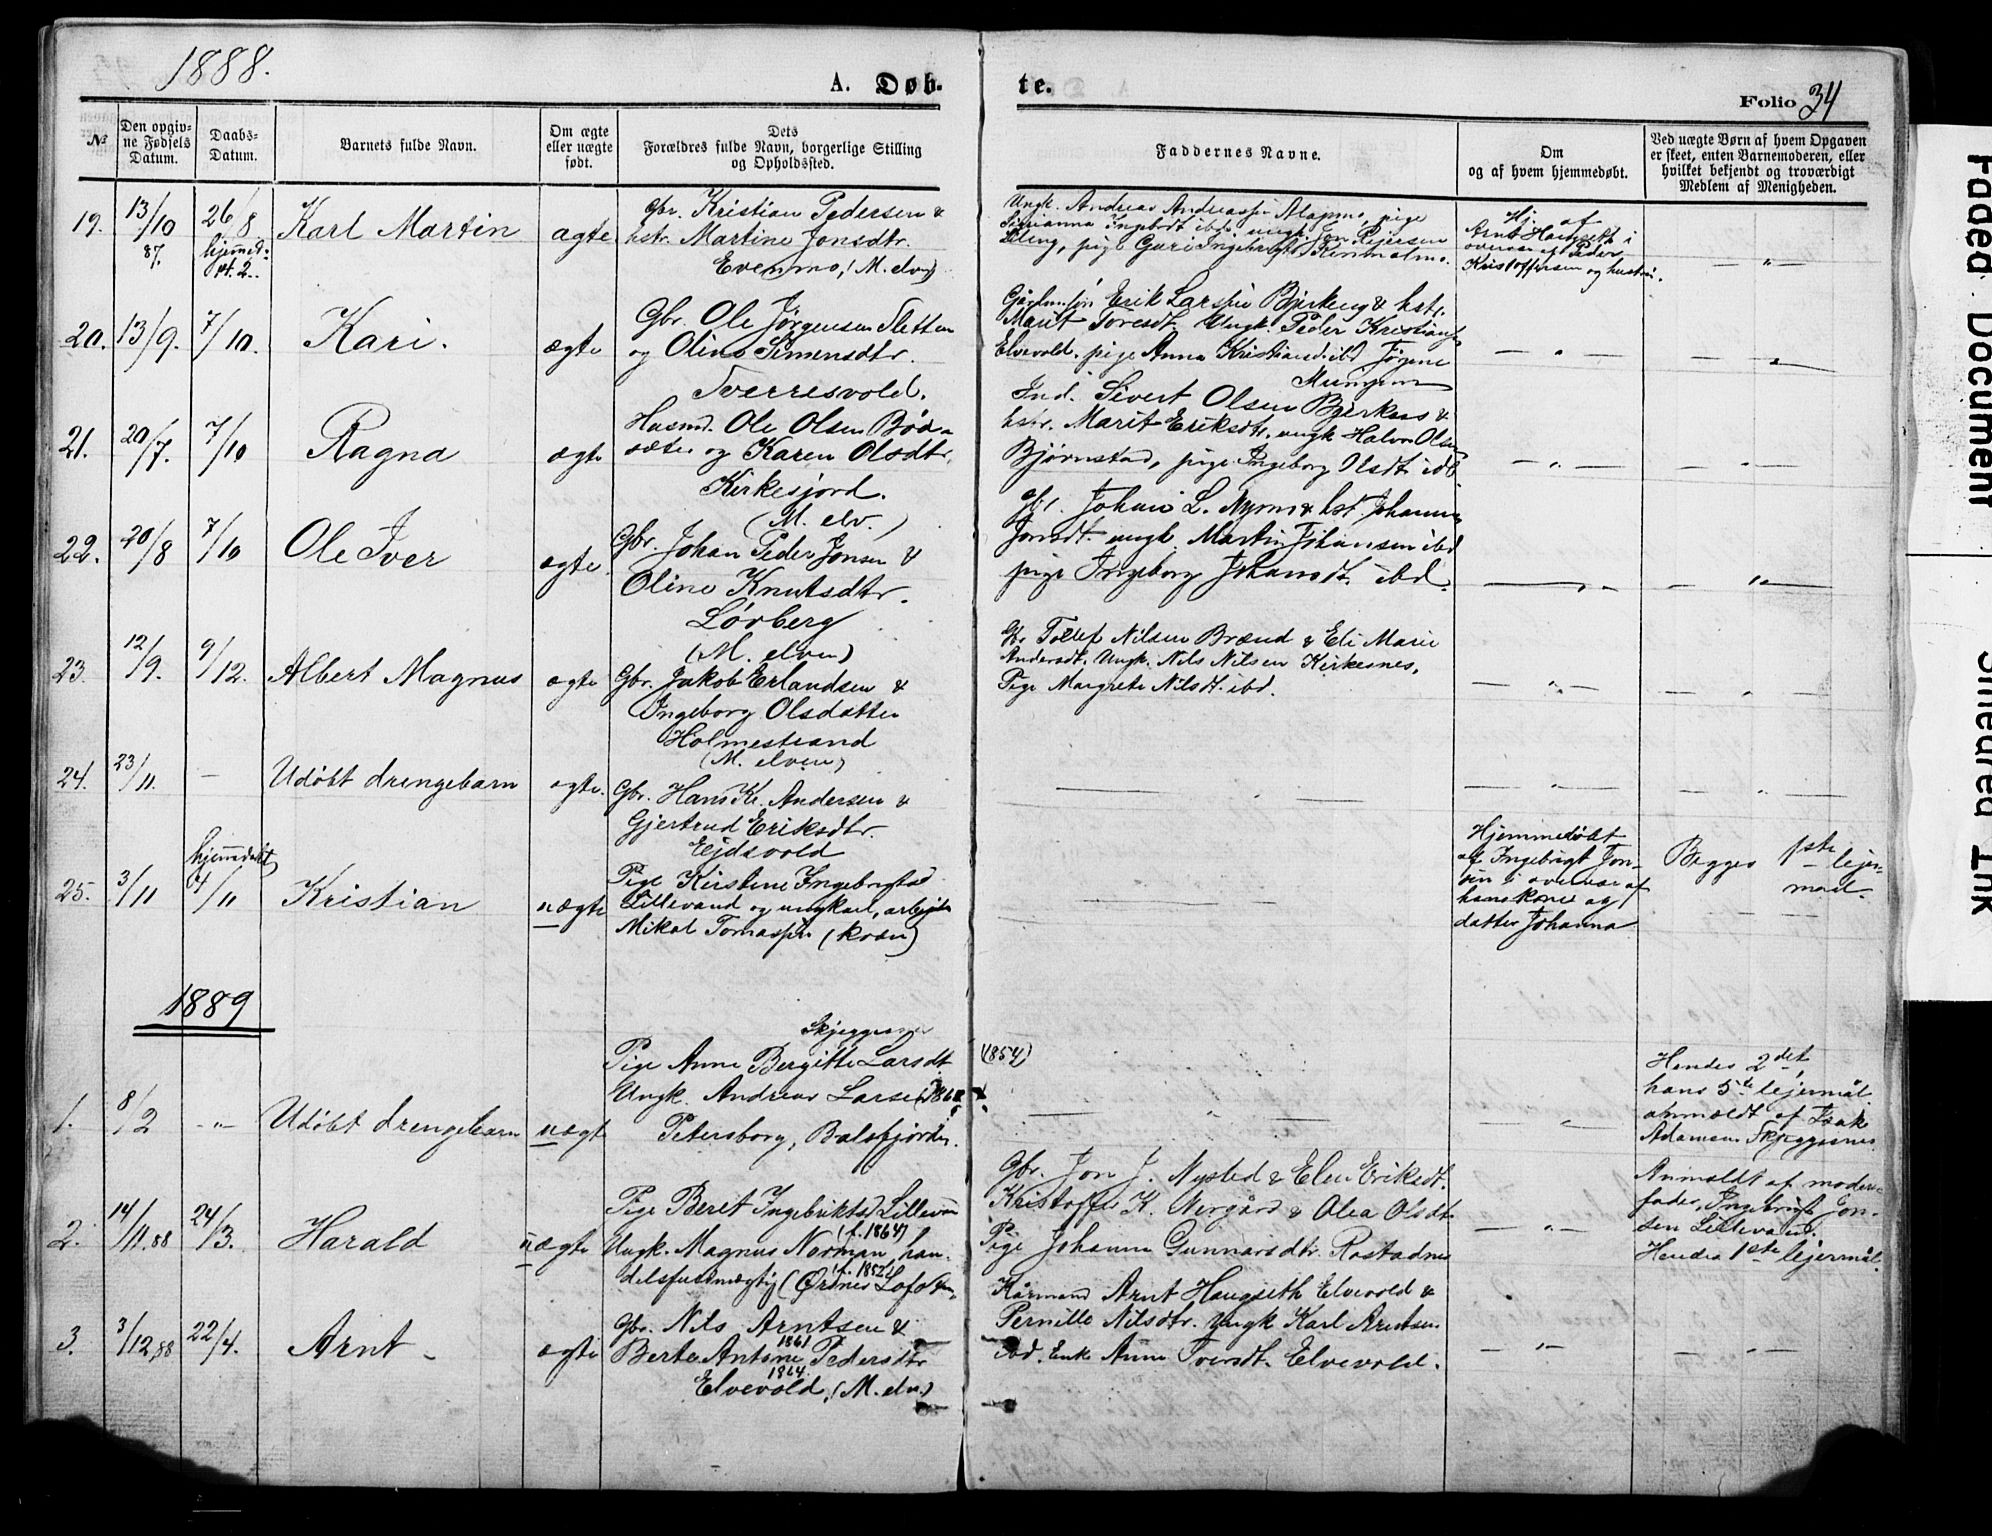 1888.
A. Døb-
te.
Folio 34
№
Den opgiv-
ne Fødsels
Datum.
Daabs-
Datum.
Barnets fulde Navn.
Om ægte
eller uægte
født.
Dets
Forældres fulde Navn, borgerlige Stilling
og Opholdssted.
Faddernes Navne.
Om
og af hvem hjemmedøbt.
Ved uægte Børn af hvem Opgaven
er skeet, enten Barnemoderen, eller
hvilket bekjendt og troværdigt
Medlem af Menigheden.
19. 13/10 87. 26/8 hjemmed. Karl Martin ægte
Gbr. Kristian Pedersen &
hstr. Martine Jonsdtr.
Evenmo, (M. elv)
Ungk. Andreas Andreassen pige
ungk. Jon Pejersen
pige Guri Ingebrigts
Hj. af
Arnt Haugseth i
overvær af Peder
Kristoffersen og hustru.
20. 13/9. 7/10. Kari. ægte
Gbr. Ole Jørgensen Sletten
og Oline Simensdtr.
Sverresvold.
Erik Larsen Bjerkeng & hstr.
Marit Toresdt. Ungk. Peder Kristians
Elvevold. pige Anna Kristiansd. ibd Jørgine
21. 20/7. 7/10 Ragna ægte
Husmd. Ole Olsen Bød-
sæter og Karen Olsdtr.
Kirkesjord.
(M. elv.)
Ind. Sivert Olsen Bjerkaas &
hstr. Marit Eriksdtr. ungk Halvor Olsen
Bjørnstad, pige Ingeborg Olsdt ibd
22. 20/8 7/10 Ole Iver ægte
Gbr. Johan Peder Jonsen &
Oline Knutsdtr.
Lørberg
(M. elven)
Gbr. Johan L. Nymo & hst. Johanna
Jonsdt. ungk. Martin Johansen ibd
pige Ingeborg Johansdt. ibd.
23. 12/9. 9/12. Albert Magnus ægte
Gbr. Jakob Erlandsen &
Ingeborg Olsdatter
Holmestrand
(M. elven)
Gbr Tollef Nilsen Brænd & Eli Marie
Andersdt. Ungk. Nils Nilsen Kirkesnes,
Pige Margrete Nilsdt. ibd.
24. 23/11. — Udøbt drengebarn ægte.
Gbr. Hans Kr. Andersen &
Gjertrud Eriksdtr.
Ejdsvold
25. 3/11 hjemmedøbt 4/11 Kristian uægte
Pige Kirstine Ingebrigtsd
Lillevand og ungkarl, arbejder
Mikal Tomassen (kvæn)
Hjemmedøbt
af Ingebrigt Jon-
sen i overvær af
hans kone og
datter Johanna
Begges 1ste lejer-
maal.
1889
1. 8/2 -"- Udøbt drengebarn uægte
Skjeggesnes
Pige Anne Bergitte Larsdt
(1854)
Ungk. Andreas Larsen
Petersborg, Balsfjorden.
Hendes 2det,
hans 5te lejermål
anmeldt af Isak
Adamsen Skjeggesnes
2. 14/11.88 24/3. Harald uægte
Pige Beret Ingebriktsd Lillevan
(f. 1864)
Ungk. Magnus Norman, han-
(f. 1852)
delsfuldmægtig (Ørsnes Lofoten.
Gbr. Jon J. Nysted & Elen Eriksdt.
Kristoffer K. Nergård & Olea Olsdt
Pige Johanna Gunnarsdtr. Rostadnes
Anmeldt af moders
fader, Ingebrigt Jon-
sen Lillevand.
Hendes 1ste lejermål.
3. 3/12,88 22/4. Arnt ægte
Gbr. Nils Arntsen &
1861
Berte Antone Pedersdtr
1864.
Elvevold, (M. elv.)
Kårmand Arnt Haugseth Elvevold &
Pernille Nilsdtr. Ungk Karl Arntsen
ibd. Enke Anne Iversdt. Elvevold.
Faded Document
Smeared Ink